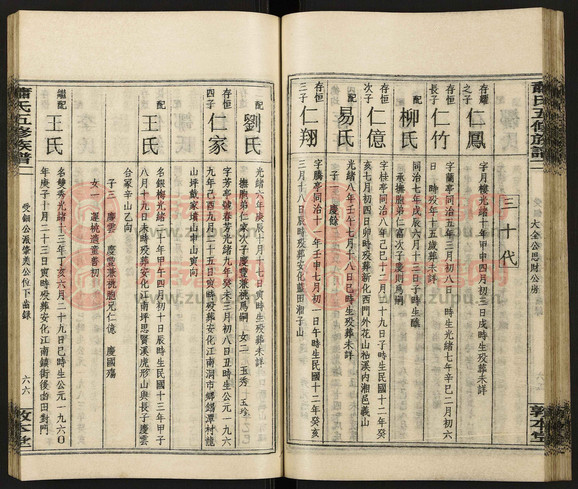 蕭氏五修族譜
大全公思財公房
敦本堂
三十代
存耀之子
仁鳳
字月樓光緒十年甲申四月初三日戌時生歿葬未詳
存恒長子
仁竹
字蘭亭同治五年三月初八日時生光緒七年辛巳二月初六日時歿年十五歲葬未詳
配
柳氏
同治七年戊辰六月十三日子時生醮
承撫胞弟仁富次子慶則為嗣
存恒次子
仁億
字桂亭同治八年己巳十二月十九日子時生民國十二年癸亥七月初四日卯時歿葬新化西門外花山枯溪內湘邑義山
配
易氏
光緒八年壬午七月十八日巳時生歿葬未詳
子一 慶餘
存恒三子
仁翔
字騰亭同治十一年壬申七月初一日午時生民國十二年癸亥三月十八日辰時歿葬安化藍田湘子山
配
劉氏
光緒六年庚辰十月十七日寅時生歿葬未詳
撫胞弟仁家次子慶豐兼祧為嗣 女二 玉秀 玉珍
存恒四子
仁家
字芳亭號春芳光緒九年癸未三月初八日丑時生公元一九六九年己酉九月二十五日寅時歿葬安化江南洞市鄉錫潭村龍山坪戴家墳山申山寅向
配
王氏
名銀梅光緒十年甲午四月初十日辰時生民國十三年甲子八月十九日未時歿葬安化江南坪思賢溪虎形山與長子慶雲合冢辛山乙向
子三 慶雲 慶豐兼祧胞兄仁億 慶國殤
女一 適桃適童書初
繼配
王氏
名雙秀光緒十三年丁亥六月二十九日巳時生公元一九六〇年庚子十月二十三日寅時歿葬安化江南鎮街後凼田對門
蕭氏五修族譜
受鈿公派肇奧公位下齒錄
六六
敦本堂